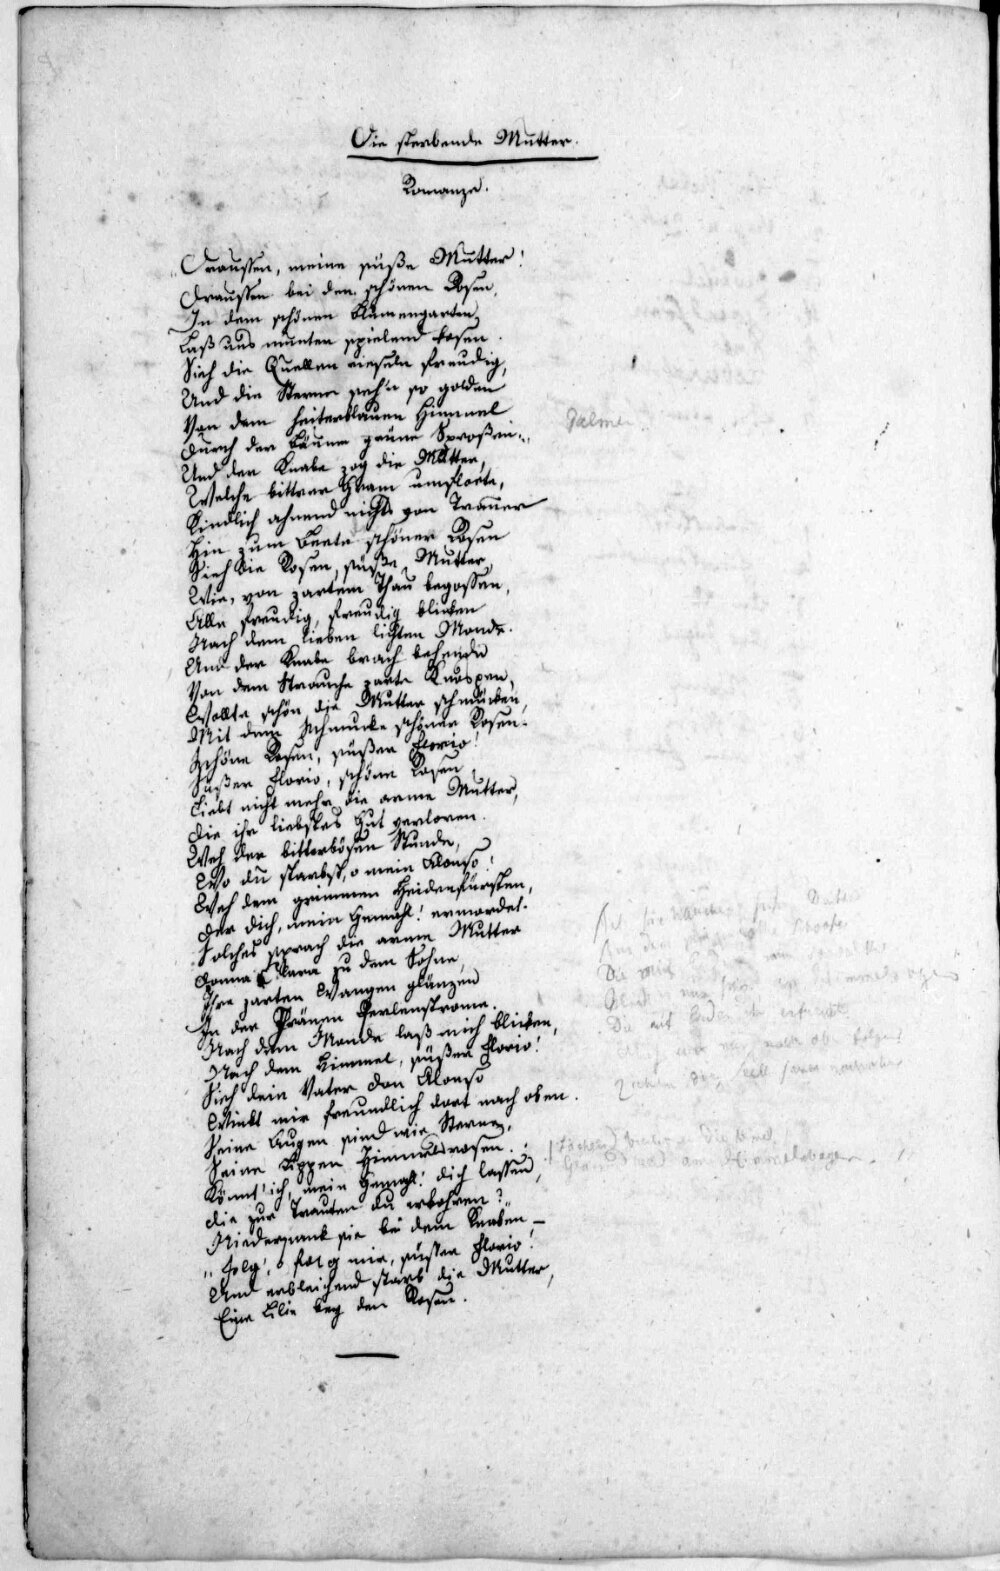 Die sterbende Mutter.
Romanze.
„Draussen, meine süße Mutter!
Draussen bei den schönen Rosen,
In dem schönen Blumengarten,
Laß uns munter spielend kosen.
Sieh die Quellen rieseln freudig,
Und die Sterne seh'n so golden
Von dem heiterblauen Himmel
Durch der Bäume grüne Sproßen.„
Und der Knabe zog die Mutter,
Welche bittrer Gram umflorte,
Kindlich ahnend nichts von Trauer
Hin zum Beete schöner Rosen
Sieh die Rosen, süße Mutter,
Wie, von zartem Thau begossen,
Alle freudig, freudig blicken
Nach dem lieben lichten Monde.
Und der Knabe brach behende
Von dem Strauche zarte Knospen,
Wollte schön die Mutter schmücken,
Mit dem Schmucke schöner Rosen.
Schöne Rosen, süßer Florio!
Süßer Florio, schöne Rosen
Liebt nicht mehr die arme Mutter,
Die ihr liebstes Gut verloren.
Weh der bitterbösen Stunde,
Wo du starbst, o mein Alonso!
Weh dem grimmen Heidenfürsten,
Der dich, mein Gemahl! ermordet.
Solches sprach die arme Mutter
Donna Clara zu dem Sohne,
Ihre zarten Wangen glänzen
In der Thränen Perlenstrome.
Nach dem Monde laß mich blicken,
Nach dem Himmel, süßer Florio!
Sieh dein Vater Don Alonso
Winkt mir freundlich dort nach oben.
Seine Augen sind wie Sterne,
Seine Lippen Himmelsrosen.
Könnt' ich, mein Gemahl! dich lassen,
Die zur Trauten du erkohren?„
Niedersank sie bei dem Knaben –
„Folg', o folg mir, süsser Florio!
Und erbleichend starb die Mutter,
Eine Lilie bey den Rosen.